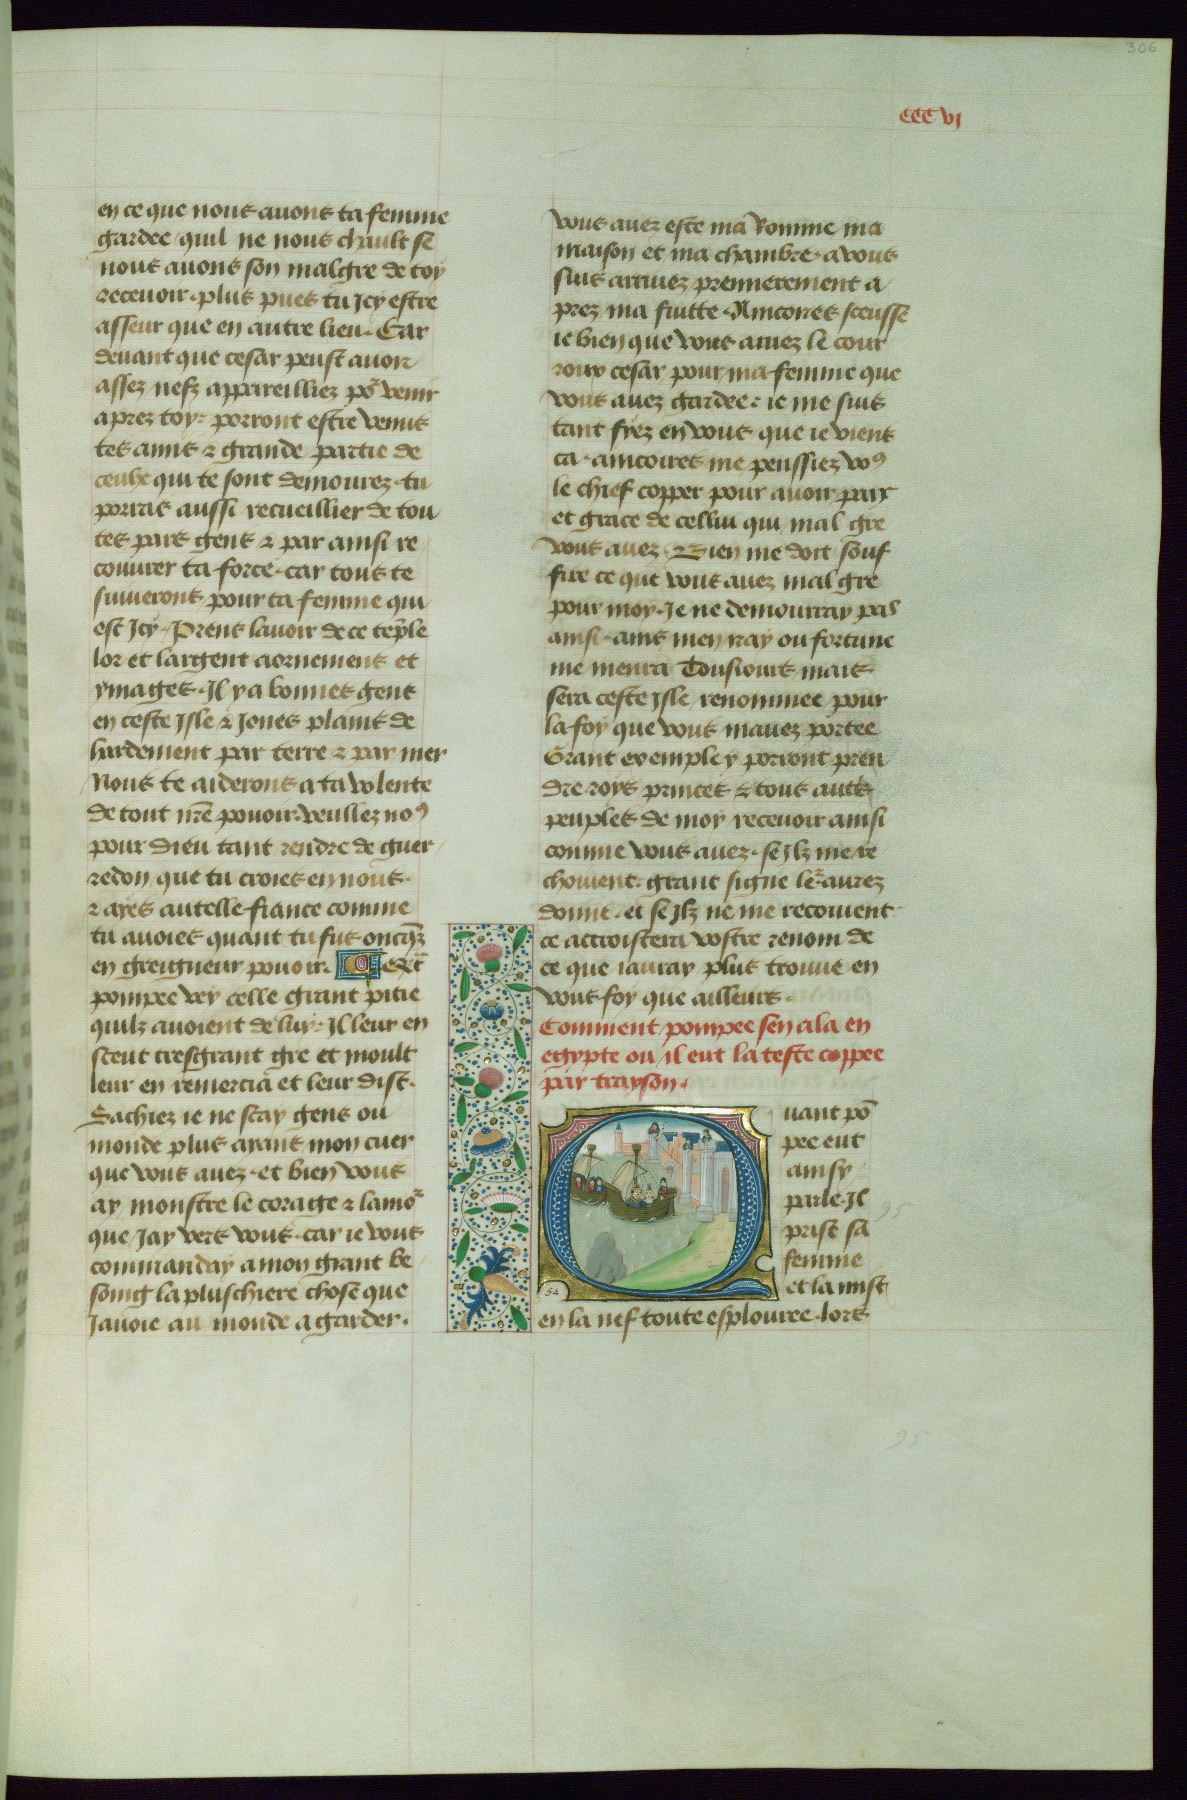 306
CCC vj
en ce que nous auons ta femme
gardee quil ne nous chault se
nous auons son malgre de toy
receuoir plus pues tu Jcy estre
asseur que en autre lieu. Car
deuant que cesar peust auoir
assez nefz appareilliez po᷑ venir
aprez toy. porront estre venus
tes amis ⁊ grande partie de
ceulx qui te sont demourez. tu
porras aussi recueillier de tou
tes pars gens ⁊ par ainsi re
couurer ta force. car tous te
suiuerons pour ta femme qui
est Jcy. Prens lauoir de ce tẽple
lor et largent aornemens et
ymages. Jl y a bonnes gens
en ceste Jsle ⁊ Jones plains de
hardement par terre ⁊ par mer
Nous te aiderons a ta volente
de tout nr̃e pouoir. veullez noꝰ
pour dieu tant rendre de guer
redon que tu croies en nous.
⁊ ayes autelle fiance comme
tu auoies quant tu fus oncq̃s
en greigneur pouoir. Qant
pompee vey celle grant pitie
quilz auoient de luy. Jl leur en
sceut tresgrant gre et moult
leur en remercia et leur dist.
Sachiez ie ne scay gens ou
monde plus ayans mon cuer
que vous auez. et bien vous
ay monstre le corage ⁊ lamo᷑
que Jay vers vous. car ie vous
commanday a mon grant be
soing la plus chiere chose que
Jauoie au monde a garder.
vous auez este ma Romme ma
maison et ma chambre. a vous
suis arriuez premierement a
prez ma fuitte. Aincores sceusse
ie bien que vous auiez le cour
roux cesar pour ma femme que
vous auez gardee. ie me suis
tant fyez en vous que ie viens
ca. aincoires me peussiez voꝰ
le chief copper pour auoir paix
et grace de cellui qui mal gre
vous auez. Bien me doit souf
fire ce que vous auez mal gre
pour moy. Je ne demourray pas
ainsi. ains men yray ou fortune
me menra Tousiours mais
sera ceste Jsle renommee pour
la foy que vous mauez portee
Grant exemple y porront pren
dre roys princes ⁊ tous autr̃s
peuples de moy receuoir ainsi
comme vous auez. se Jlz me re
choiuent. grant signe le᷑ aurez
donne. et se Jlz ne me recoiuent
ce accroistera vostre renom de
ce que iauray plus trouue en
vous foy que ailleurs.
Comment pompee sen ala en
egypte ou il eut la teste coppee
par trayson.
Quant põ
pee eut
ainsy
parle. Jl
prist sa
femme
et la mist
en la nef toute esplouree. lors
54
95
95